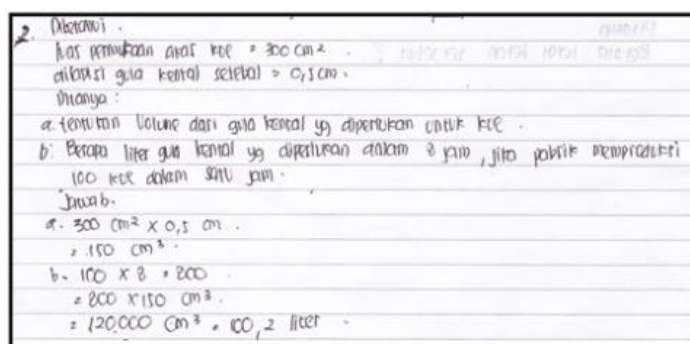 2. Diketahui .
luas permukaan atas kue = 300 cm 2 .
dilapisi gula kental setebal = 0,5 cm .
Ditanya :
a. tentukan Volume dari gula kental yg diperlukan untuk kue .
b. Berapa liter gula kental yg diperlukan dalam 8 jam , jika pabrik memproduksi
100 kue dalam satu jam .
Jawab .
a. 300 cm² x 0,5 cm .
= 150 cm³ .
b. 100 x 8 = 800
= 800 x 150 cm³ .
= 120.000 cm³ = 100,2 liter .